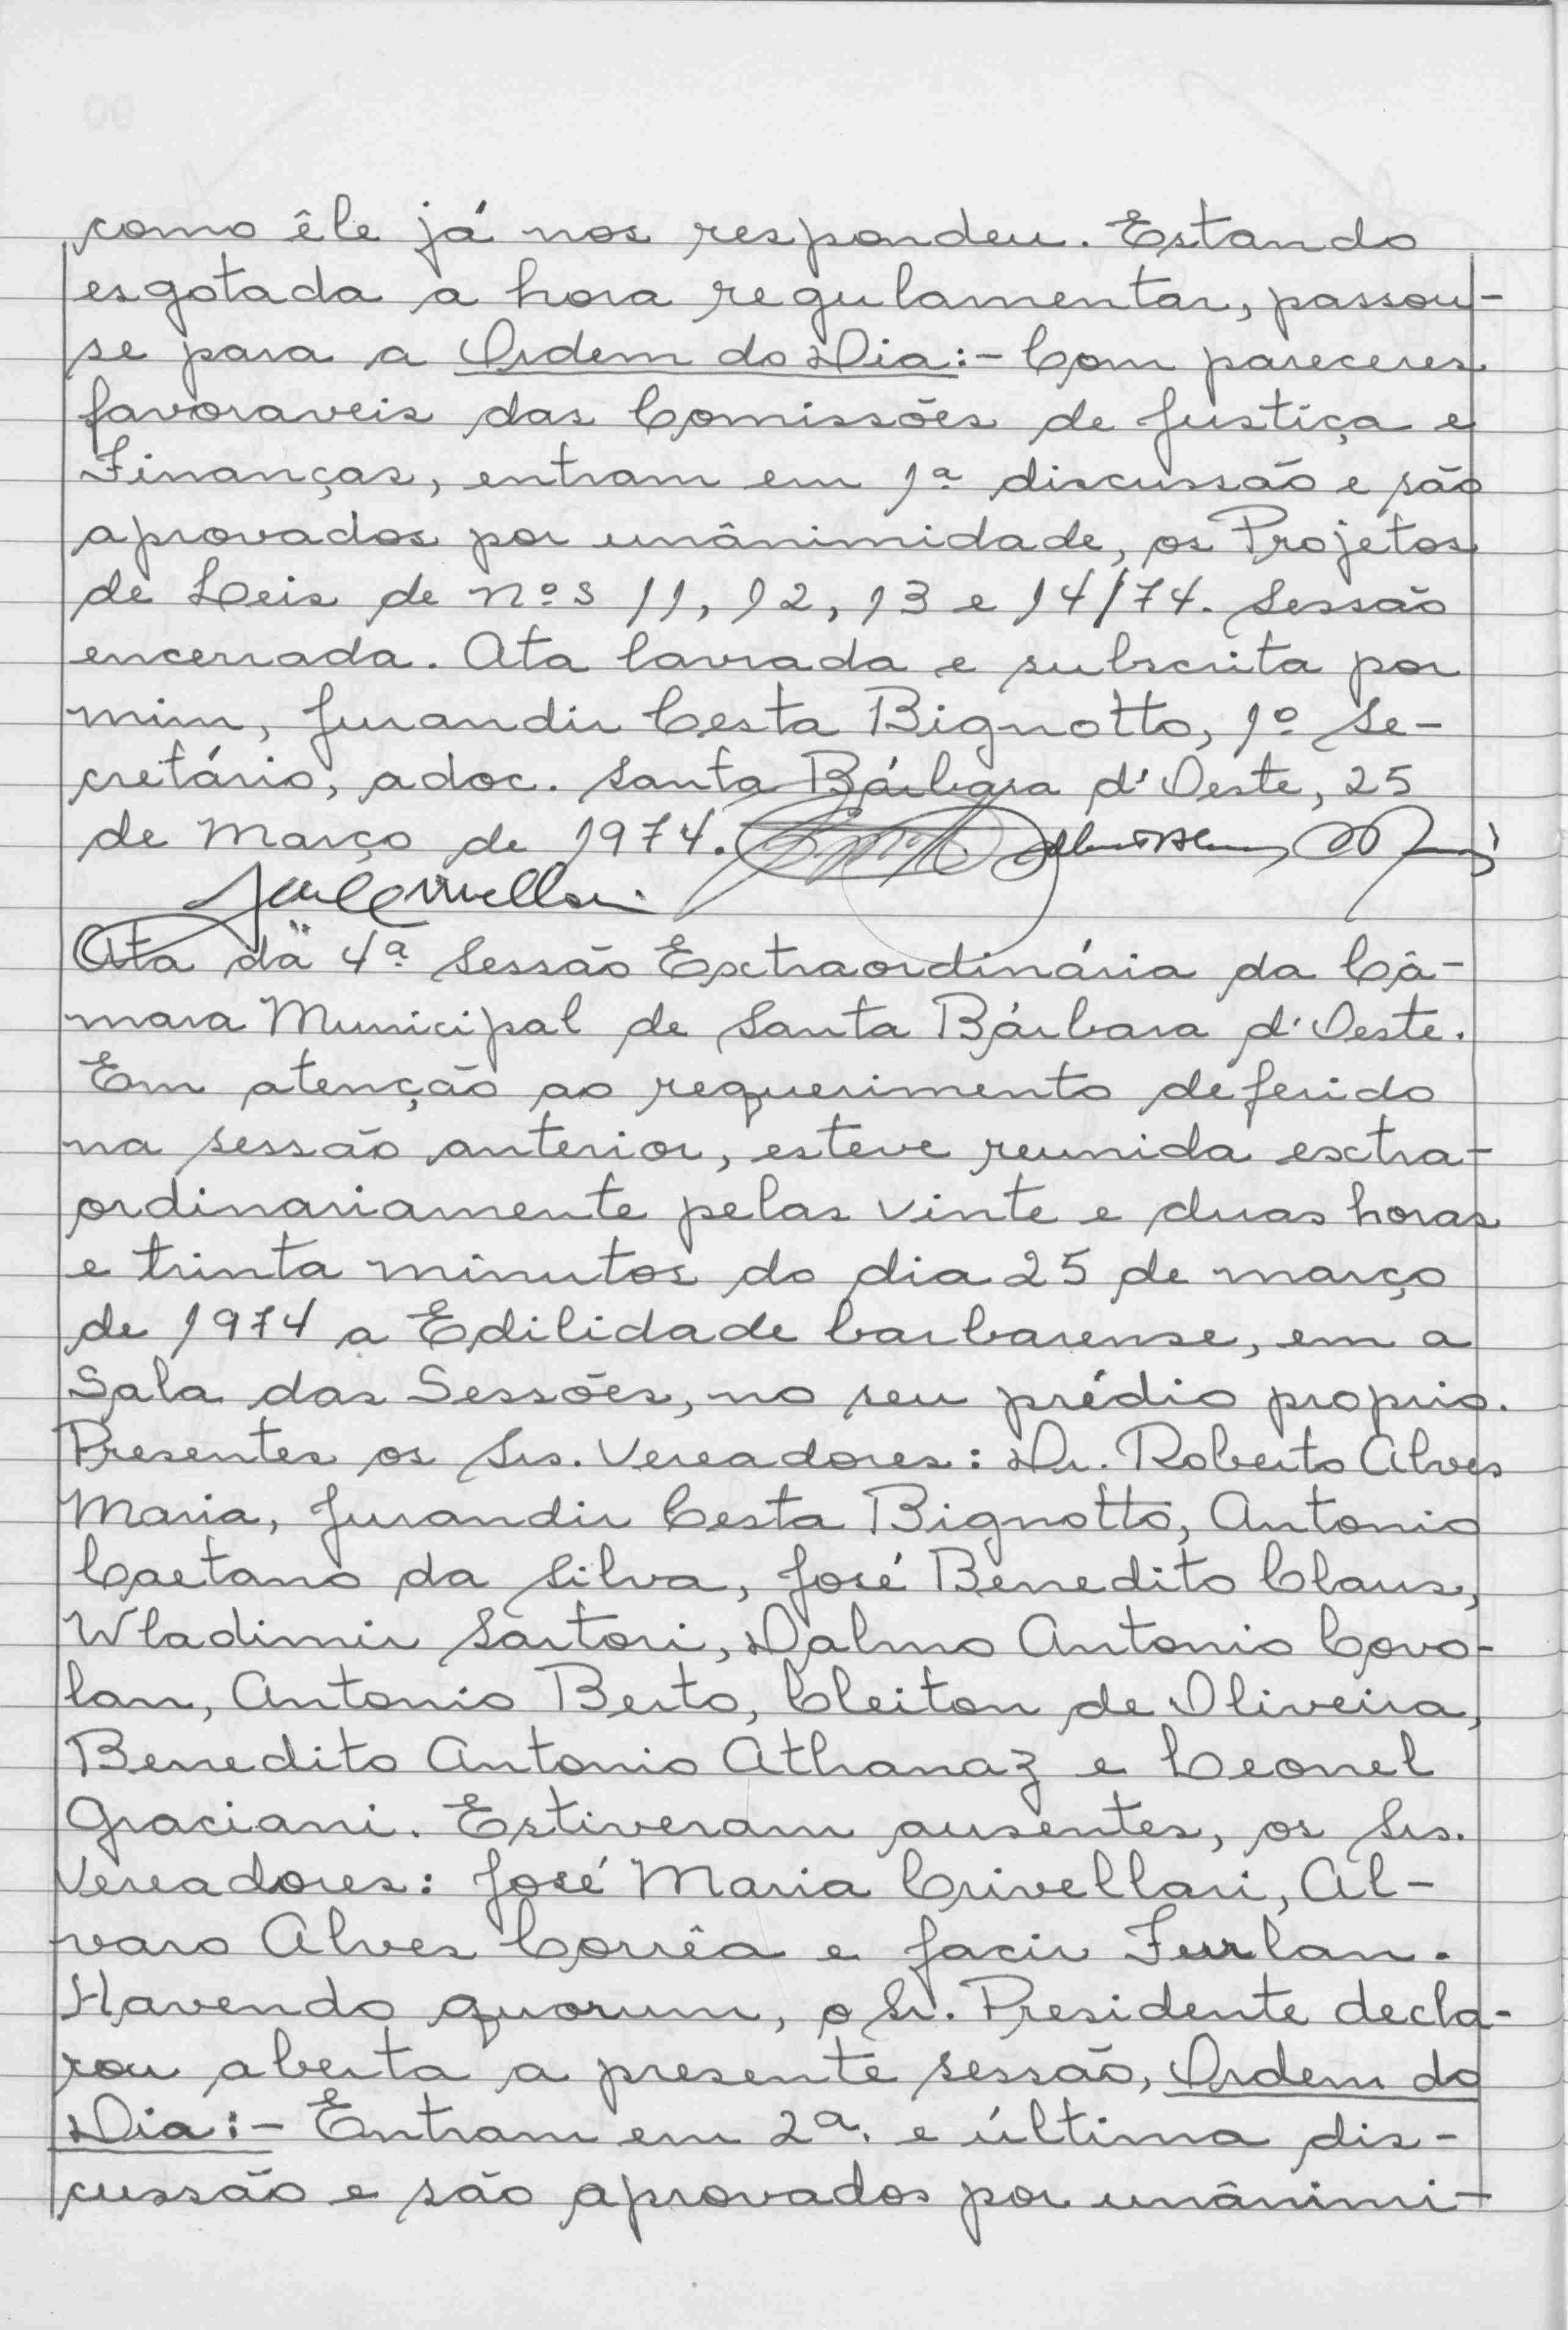 como êle já nos respondeu. Estando
esgotada a hora regulamentar, passou-
se para a Ordem do Dia:- Com pareceres
favoraveis das Comissões de Justiça e
Finanças, entram em 1ª discussão e são
aprovados por unânimidade, os Projetos
de Leis de nºs 11, 12, 13 e 14/74. Sessão
encerrada. Ata lavrada e subscrita por
mim, Jurandir Cesta Bignotto, 1º Se-
cretário, adoc. Santa Bárbara d'Oeste, 25
de Março de 1974.
Ata da 4ª Sessão Extraordinária da Câ-
mara Municipal de Santa Bárbara d'Oeste.
Em atenção ao requerimento deferido
na sessão anterior, esteve reunida extra-
ordinariamente pelas vinte e duas horas
e trinta minutos do dia 25 de março
de 1974 a Edilidade barbarense, em a
Sala das Sessões, no seu prédio proprio.
Presentes os Srs. Vereadores: Dr. Roberto Alves
Maria, Jurandir Cesta Bignotto, Antonio
Caetano da Silva, José Benedito Claus,
Wladimir Sartori, Dalmo Antonio Covo-
lan, Antonio Berto, Cleiton de Oliveira,
Benedito Antonio Athanaz e Leonel
Graciani. Estiveram ausentes, os Srs.
Vereadores: José Maria Crivellari, Al-
varo Alves Corrêa e Jacir Furlan.
Havendo quorum, o Sr. Presidente decla-
rou aberta a presente sessão, Ordem do
Dia:- Entram em 2ª. e última dis-
cussão e são aprovados por unânimi-